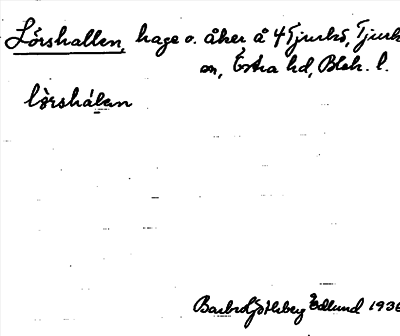 Lörshallen, hage o. åker å 4 Tjurkö, Tjurk
sn, Östra hd, Blek. l.
lö̀rshálan
Barbro Edlund 1936